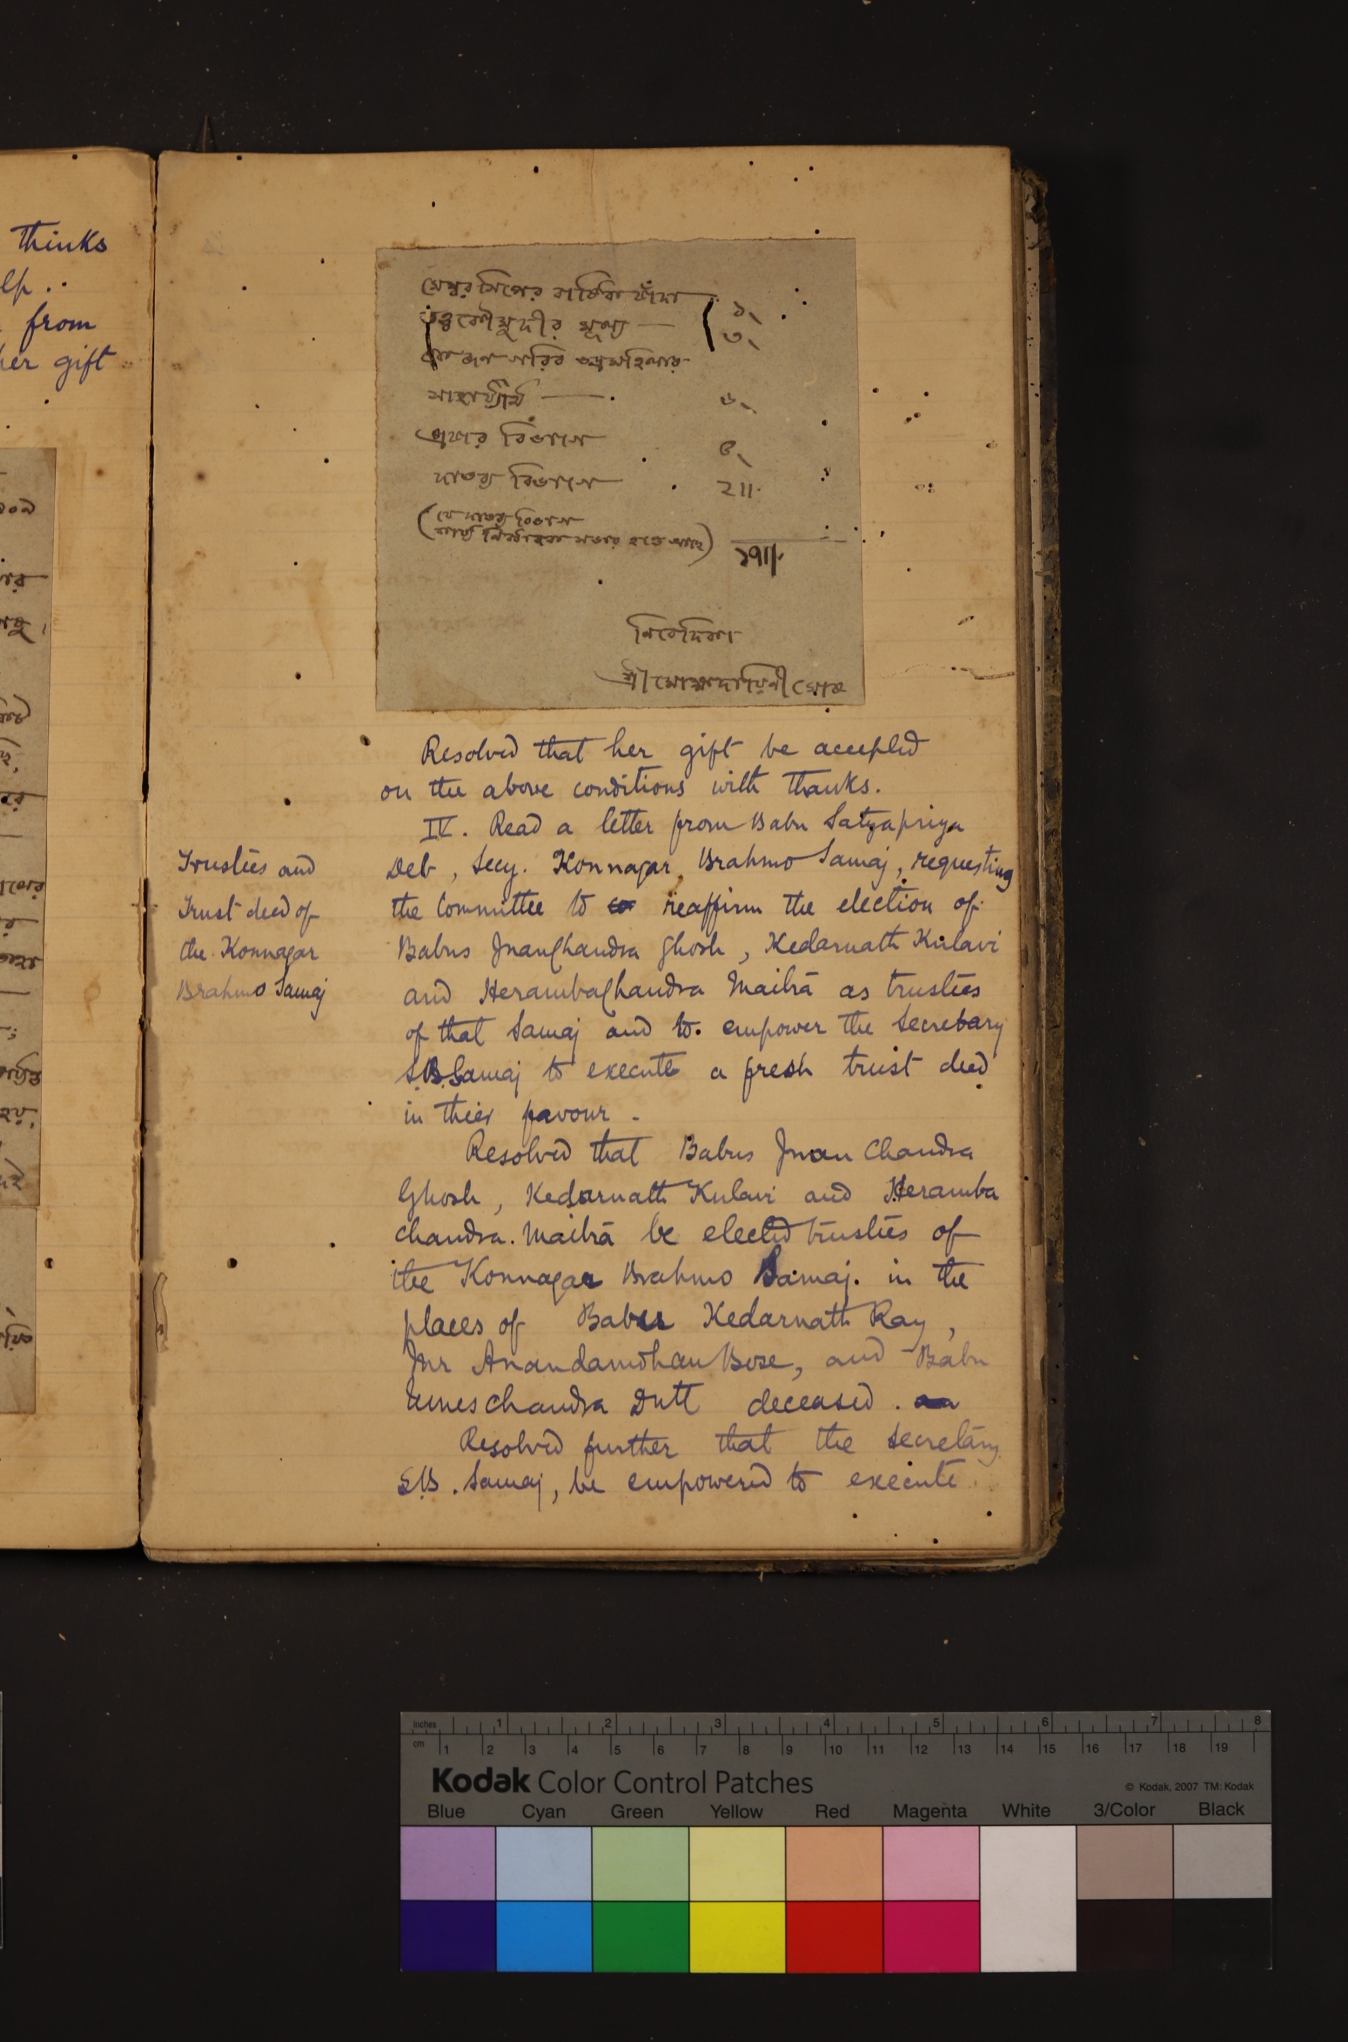 thinks
from
gift
মেম্বরসিপের বার্ষিক চাঁদা ১৲
তত্ত্বকৌমুদীর মূল্য — ৩৲
ভদ্রমহিলার
সাহায্যার্থ — ৬৲
প্রচার বিভাগে ৫৲
দাতব্য বিভাগে ২॥৹
(যে দাতব্য বিভাগ
কার্য্য নির্ব্বাহক সভার হাতে আছে)
১৭॥৹
নিবেদিকা
শ্রীমোক্ষদায়িনী ঘোষ
Resolved that her gift be accepted
on the above conditions with thanks.
IV. Read a letter from Babu Satyapriya
Deb, Secy. Konnagar Brahmo Samaj, requesting
the Committee to reaffirm the election of
Babus JnanChandra Ghosh, Kedarnath Kulavi
and HerambaChandra Maitrā as trustees
of that Samaj and to empower the Secretary
S.B. Samaj to execute a fresh trust deed
in their favour.
Trustees and
Trust deed of
the Konnagar
Brahmo Samaj
Resolved that Babus Jnan Chandra
Ghosh, Kedarnath Kulavi and Heramba
Chandra Maitrā be elected trustees of
the Konnagar Brahmo Samaj in the
places of Babus Kedarnath Ray,
Mr Anandamohan Bose, and Babu
Umeschandra Dutt deceased.
Resolved further that the Secretary
S.B. Samaj, be empowered to execute
Inches 1 2 3 4 5 6 7 8
cm 1 2 3 4 5 6 7 8 9 10 11 12 13 14 15 16 17 18 19
Kodak Color Control Patches
© Kodak, 2007 TM: Kodak
Blue Cyan Green Yellow Red Magenta White 3/Color Black